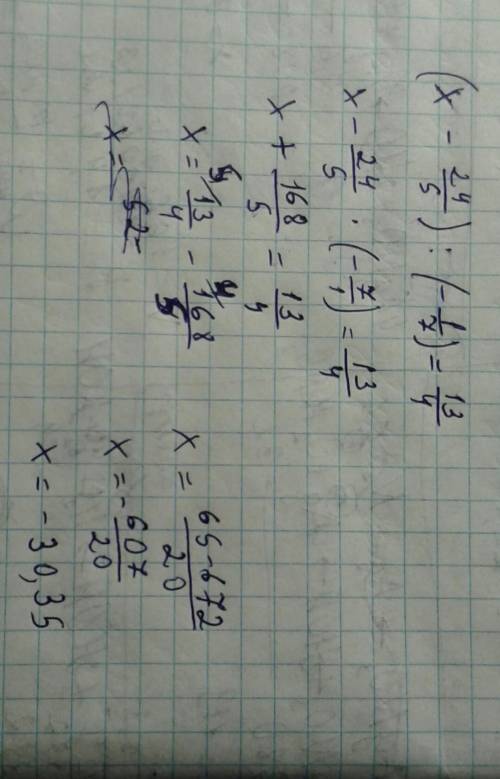 (x - 24/5) : (-1/7) = 13/4
x - 24/5 · (-7/1) = 13/4
x + 168/5 = 13/4
x = 5/ 13/4 - 4/ 168/5
x = (65-672)/20
x = -607/20
x = -30,35